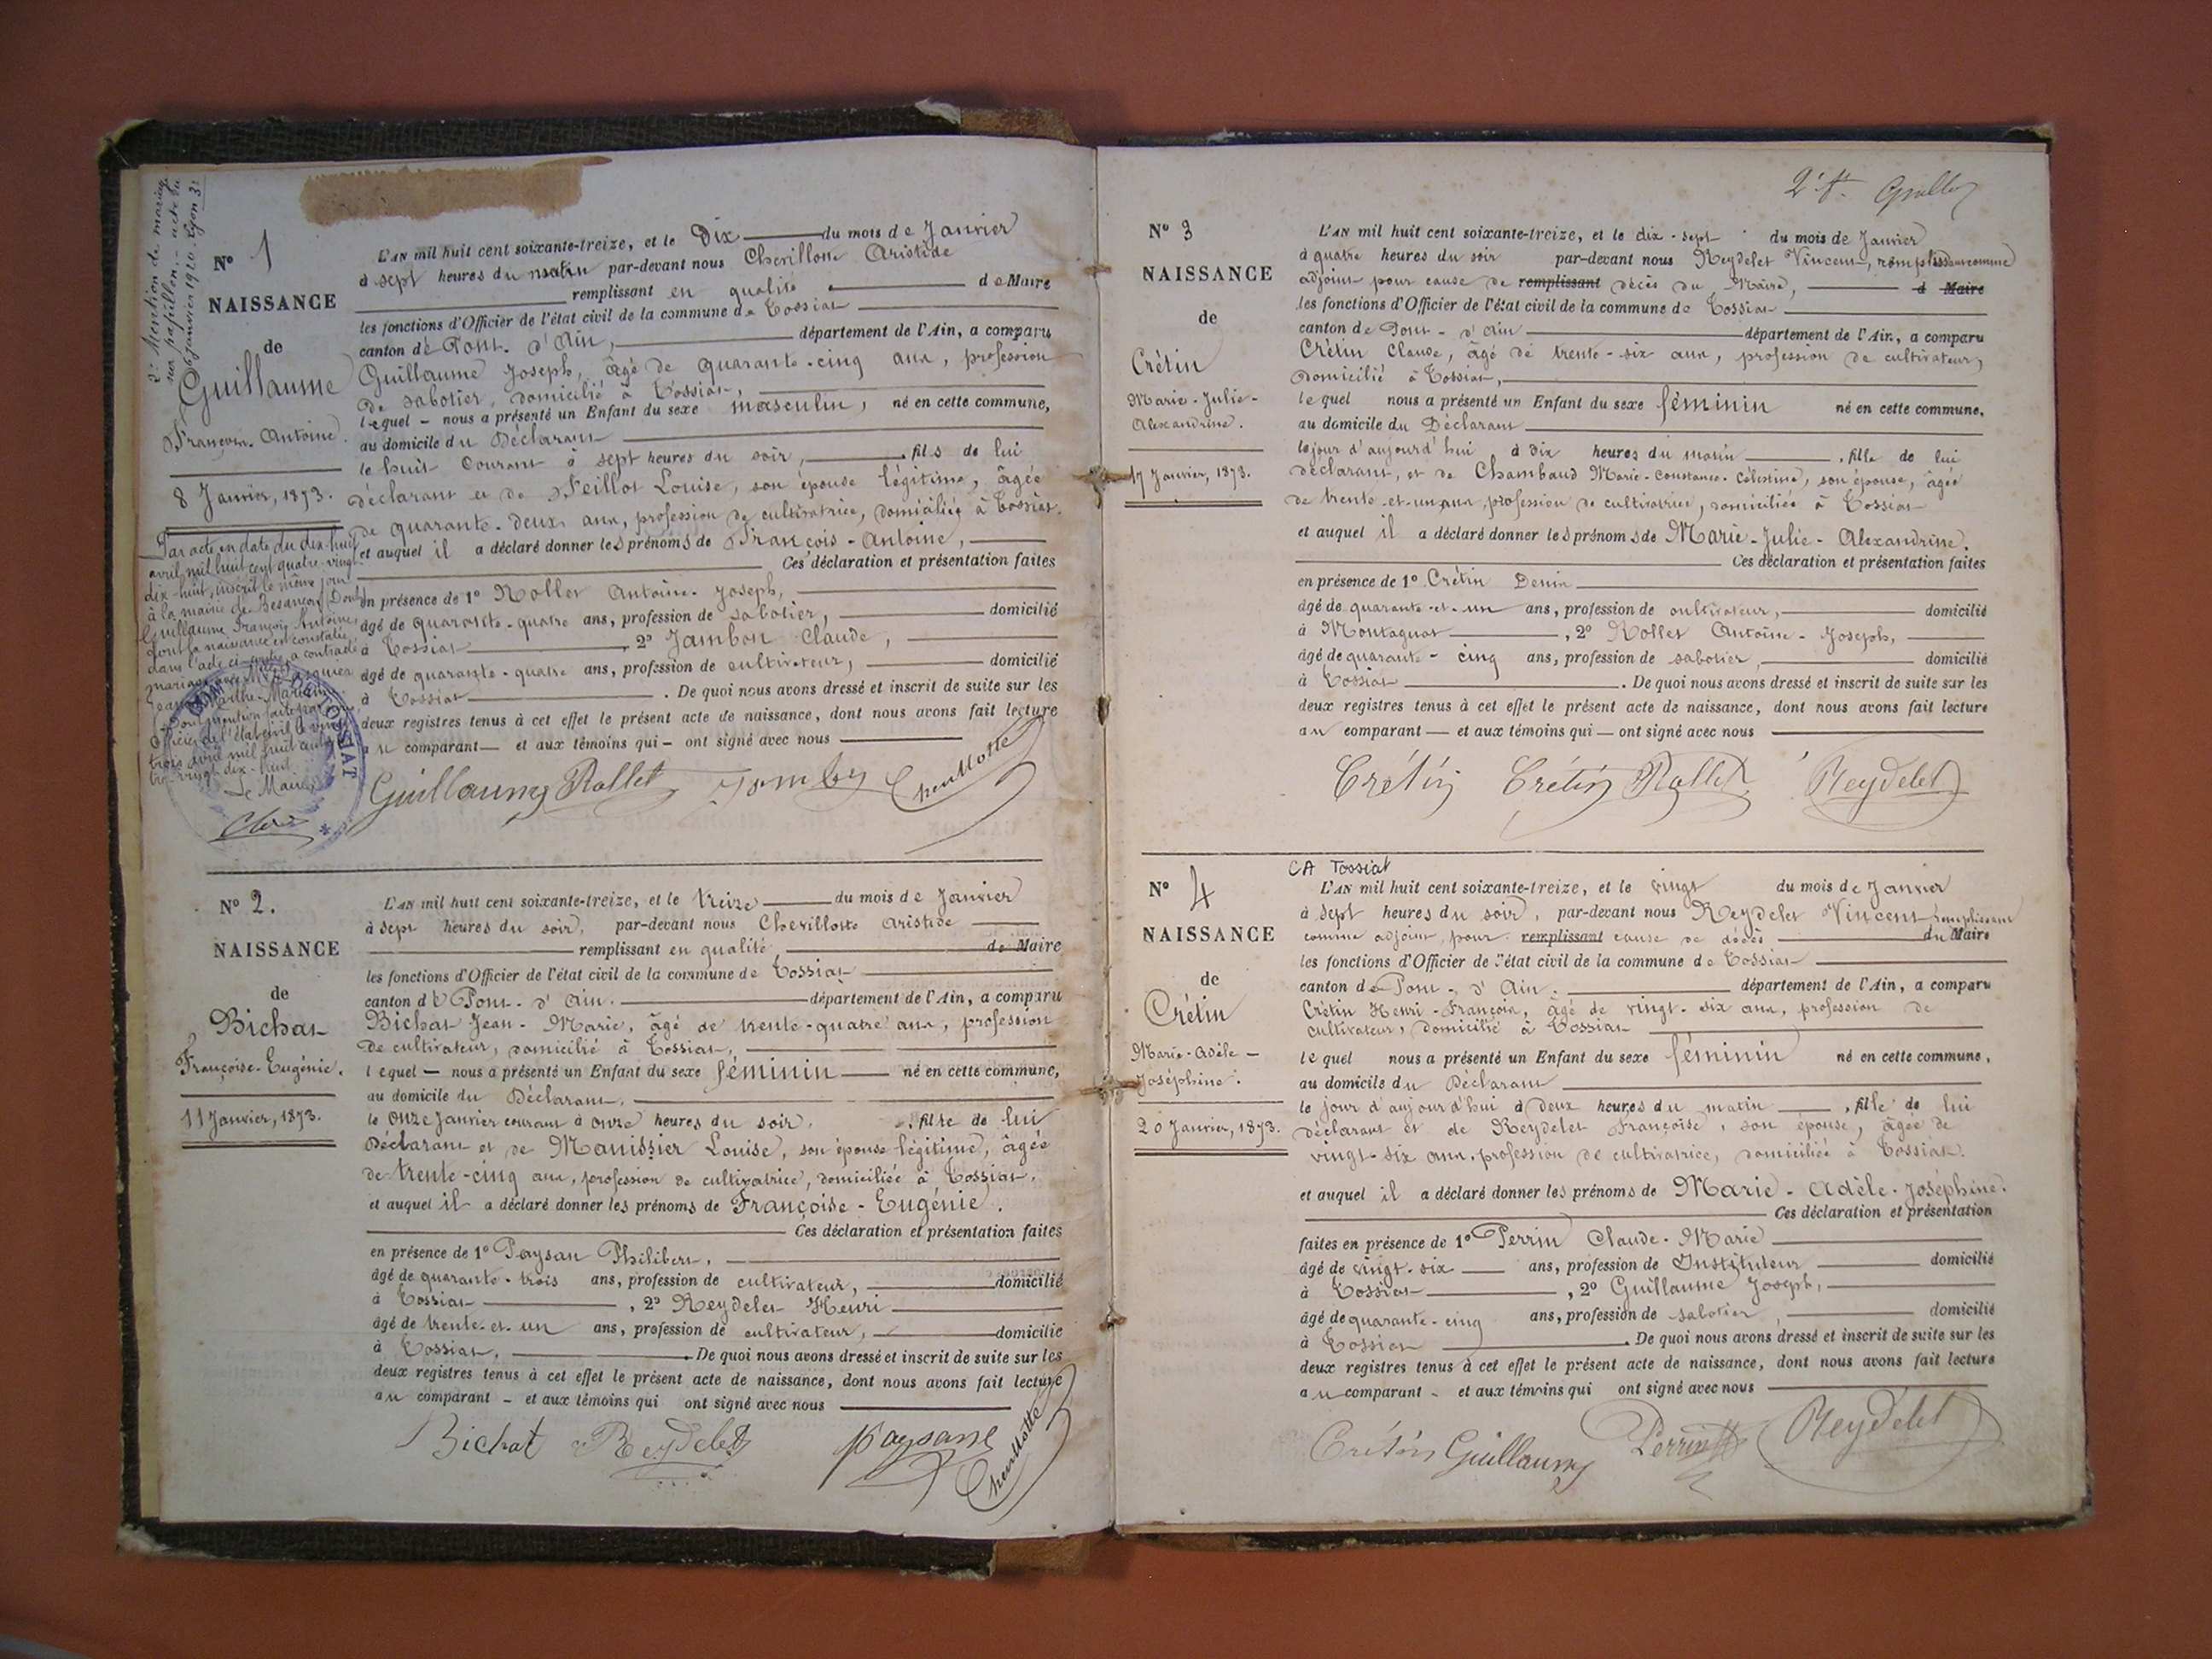 2e Mention de mariage
sur papillon :- acte du
26 janvier 1920 - Lyon 3e
N° 1
NAISSANCE
de
Guillaume
François-Antoine.
8 Janvier, 1873.
Par acte en date du dix-huit
avril mil huit cent quatre-vingt
dix-huit, inscrit le même jour
à la mairie de Besançon (Doubs)
Guillaume François Antoine,
dont la naissance est constatée
dans l'acte ci-contre, a contracté
mariage avec
Jeanne Marthe
Dont mention faite par
officier de l'état civil le vingt
trois avril mil huit cent
quatre-vingt dix-huit
Le Maire,
L'AN mil huit cent soixante-treize, et le Dix du mois de Janvier
à sept heures du matin par-devant nous Chevillotte Aristide
remplissant en qualité de Maire
les fonctions d'Officier de l'état civil de la commune de Tossiat
canton de Pont-d'Ain, département de l'Ain, a comparu
Guillaume Joseph, âgé de quarante-cinq ans, profession
de sabotier, domicilié à Tossiat,
lequel - nous a présenté un Enfant du sexe masculin, né en cette commune,
au domicile du Déclarant
le huit Courant à sept heures du soir, fils de lui
déclarant et de Feillot Louise, son épouse légitime, âgée
de quarante-deux ans, profession de cultivatrice, domiciliée à Tossiat.
et auquel il a déclaré donner les prénoms de François-Antoine,
Ces déclaration et présentation faites
en présence de 1° Rollet Antoine-Joseph,
âgé de quarante-quatre ans, profession de sabotier, domicilié
à Tossiat, 2° Jambon Claude,
âgé de quarante-quatre ans, profession de cultivateur, domicilié
à Tossiat. De quoi nous avons dressé et inscrit de suite sur les
deux registres tenus à cet effet le présent acte de naissance, dont nous avons fait lecture
au comparant — et aux témoins qui — ont signé avec nous
Guillaume Rollet Jambon Chevillotte
N° 2.
NAISSANCE
de
Bichat
Françoise-Eugénie.
11 Janvier, 1873.
L'AN mil huit cent soixante-treize, et le treize du mois de Janvier
à sept heures du soir, par-devant nous Chevillotte Aristide
remplissant en qualité de Maire
les fonctions d'Officier de l'état civil de la commune de Tossiat
canton de Pont-d'Ain. département de l'Ain, a comparu
Bichat Jean-Marie, âgé de trente-quatre ans, profession
de cultivateur, domicilié à Tossiat,
lequel — nous a présenté un Enfant du sexe féminin né en cette commune,
au domicile du Déclarant.
le onze Janvier courant à onze heures du soir, fille de lui
Déclarant et de Manissier Louise, son épouse légitime, âgée
de trente-cinq ans, profession de cultivatrice, domiciliée à Tossiat.
et auquel il a déclaré donner les prénoms de Françoise-Eugénie.
Ces déclaration et présentation faites
en présence de 1° Paysan Philibert,
âgé de quarante-trois ans, profession de cultivateur, domicilié
à Tossiat, 2° Reydelet Henri
âgé de trente-et-un ans, profession de cultivateur, domicilié
à Tossiat. De quoi nous avons dressé et inscrit de suite sur les
deux registres tenus à cet effet le présent acte de naissance, dont nous avons fait lecture
au comparant - et aux témoins qui ont signé avec nous
Bichat Reydelet paysanne Chevillotte
N° 3
NAISSANCE
de
Crétin
Marie-Julie-
Alexandrine.
17 Janvier, 1873.
L'AN mil huit cent soixante-treize, et le dix-sept du mois de Janvier
à quatre heures du soir par-devant nous Reydelet Vincent, remplissant comme
adjoint pour cause de remplissant décès du Maire, d Maire
les fonctions d'Officier de l'état civil de la commune de Tossiat
canton de Pont-d'Ain département de l'Ain, a comparu
Crétin Claude, âgé de trente-six ans, profession de cultivateur,
domicilié à Tossiat,
lequel nous a présenté un Enfant du sexe féminin né en cette commune,
au domicile du Déclarant
le jour d'aujourd'hui à dix heures du matin, fille de lui
déclarant, et de Chambaud Marie-Constance-Célestine, son épouse, âgée
de trente-et-un ans, profession de cultivatrice, domiciliée à Tossiat
et auquel il a déclaré donner les prénoms de Marie-Julie-Alexandrine.
Ces déclaration et présentation faites
en présence de 1° Crétin Denis
âgé de quarante-et-un ans, profession de cultivateur, domicilié
à Montagnat, 2° Rollet Antoine-Joseph,
âgé de quarante-cinq ans, profession de sabotier, domicilié
à Tossiat. De quoi nous avons dressé et inscrit de suite sur les
deux registres tenus à cet effet le présent acte de naissance, dont nous avons fait lecture
au comparant — et aux témoins qui — ont signé avec nous
Crétin Crétin Rollet Reydelet
CA Tossiat
N° 4
NAISSANCE
de
Crétin
Marie-Adèle-
Joséphine.
20 Janvier, 1873.
L'AN mil huit cent soixante-treize, et le vingt du mois de Janvier
à sept heures du soir, par-devant nous Reydelet Vincent remplissant
comme adjoint, pour remplissant cause de décès du Maire
les fonctions d'Officier de l'état civil de la commune de Tossiat
canton de Pont-d'Ain. département de l'Ain, a comparu
Crétin Henri-François, âgé de vingt-six ans, profession de
cultivateur, domicilié à Tossiat
lequel nous a présenté un Enfant du sexe féminin né en cette commune,
au domicile du Déclarant
le jour d'aujourd'hui à deux heures du matin, fille de lui
déclarant et de Reydelet Françoise, son épouse, âgée de
vingt-six ans, profession de cultivatrice, domiciliée à Tossiat.
et auquel il a déclaré donner les prénoms de Marie-Adèle-Joséphine.
Ces déclaration et présentation
faites en présence de 1° Perrin Claude-Marie
âgé de vingt-six ans, profession de Instituteur domicilié
à Tossiat, 2° Guillaume Joseph,
âgé de quarante-cinq ans, profession de sabotier, domicilié
à Tossiat. De quoi nous avons dressé et inscrit de suite sur les
deux registres tenus à cet effet le présent acte de naissance, dont nous avons fait lecture
au comparant - et aux témoins qui ont signé avec nous
Crétin Guillaume Perrin Reydelet